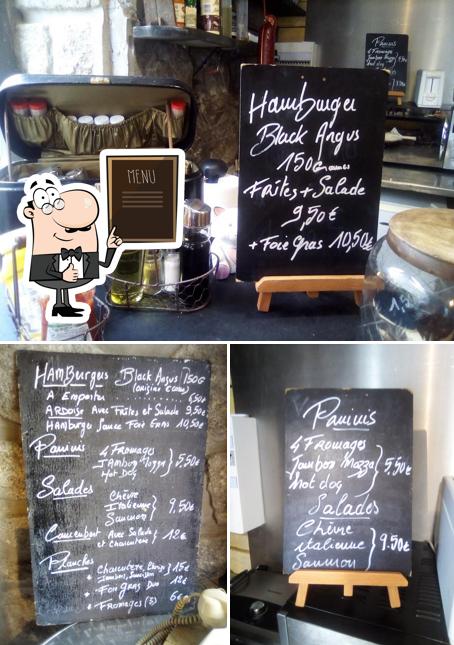 Hamburger
Black Angus
150 Grammes
Frites + Salade
9,50 €
+ Foie Gras 10,50€
Paninis
4 Fromages
Jambon Mozza
Hot dog
MENU
HAMBurgers Black Angus 150G
A Emporter ........ 6,50€
ARDOISE Avec Frites et Salade 9,50€
HAMburger Sauce Foie Gras 10,50€
Paninis
4 Fromages
JAmbon Mozza 5.50€
Hot Dog
Salades
Chèvre
Italienne 9.50€
Saumon
Camembert Avec Salade 12€
et Charcuterie
Planches
Charcuterie, 15€
+ Jambon, Saucisson
+ Foie gras Duo 12€
+ Fromages (3) 6€
Paninis
4 Fromages
Jambon Mozza 5.50€
Hot dog
Salades
Chèvre
italienne 9.50€
Saumon